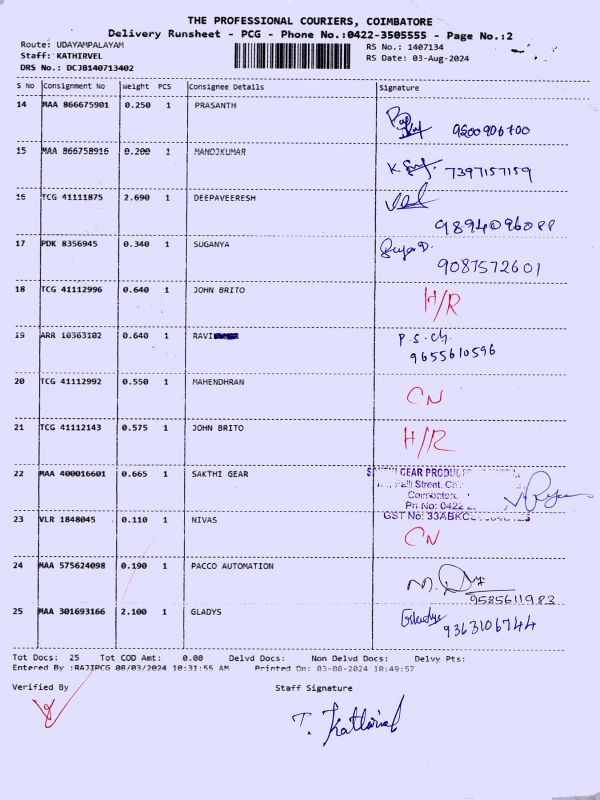 THE PROFESSIONAL COURIERS, COIMBATORE
Delivery Runsheet - PCG - Phone No.:0422-3505555 - Page No.:2
Route: UDAYAMPALAYAM
Staff: KATHIRVEL
DRS No.: DCJB140713402
RS No.: 1407134
RS Date: 03-Aug-2024
S No Consignment No Weight PCS Consignee Details Signature
14 MAA 866675901 0.250 1 PRASANTH
15 MAA 866758916 0.200 1 MANOJKUMAR K 7397157159
16 TCG 41111875 2.690 1 DEEPAVEERESH 9894096088
17 PDK 8356945 0.340 1 SUGANYA 9087572601
18 TCG 41112996 0.640 1 JOHN BRITO H/R
19 ARR 10363102 0.640 1 RAVI P.S.Ch. 9655610596
20 TCG 41112992 0.550 1 MAHENDHRAN CN
21 TCG 41112143 0.575 1 JOHN BRITO H/R
22 MAA 400016601 0.665 1 SAKTHI GEAR
GEAR PRODUCT
Street,
Coimbatore
Ph No: 0422
GST No:
23 VLR 1848045 0.110 1 NIVAS CN
24 MAA 575624098 0.190 1 PACCO AUTOMATION M. 9585611983
25 MAA 301693166 2.100 1 GLADYS Gladys 9363106744
Tot Docs: 25 Tot COD Amt: 0.00 Delvd Docs: Non Delvd Docs: Delvy Pts:
Entered By :RAJIPCG 08/03/2024 10:31:55 AM Printed On: 03-08-2024 10:49:57
Verified By Staff Signature
T. Kathirvel